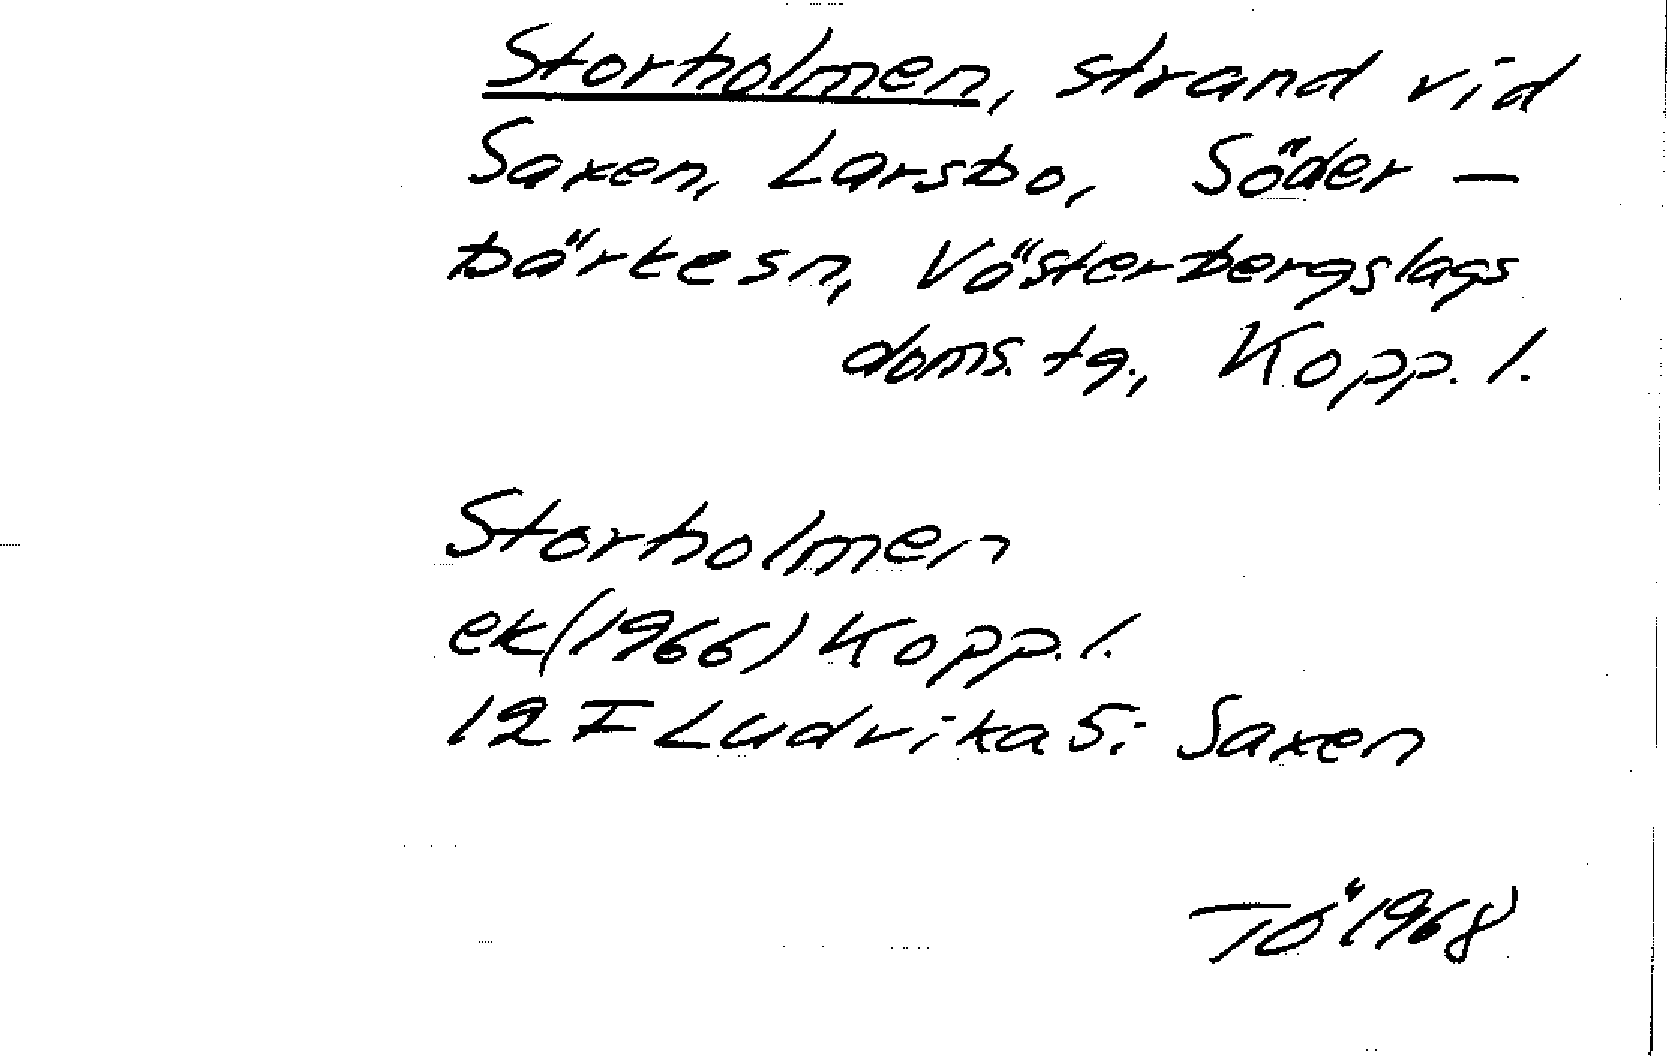 Storholmen, strand vid
Saxen, Larsbo, Söder-
bärke sn, Västerbergslags
doms. tg., Kopp. l.
Storholmen
ek (1966) Kopp. l.
12 F Ludvika S: Saxen
TÖ 1968